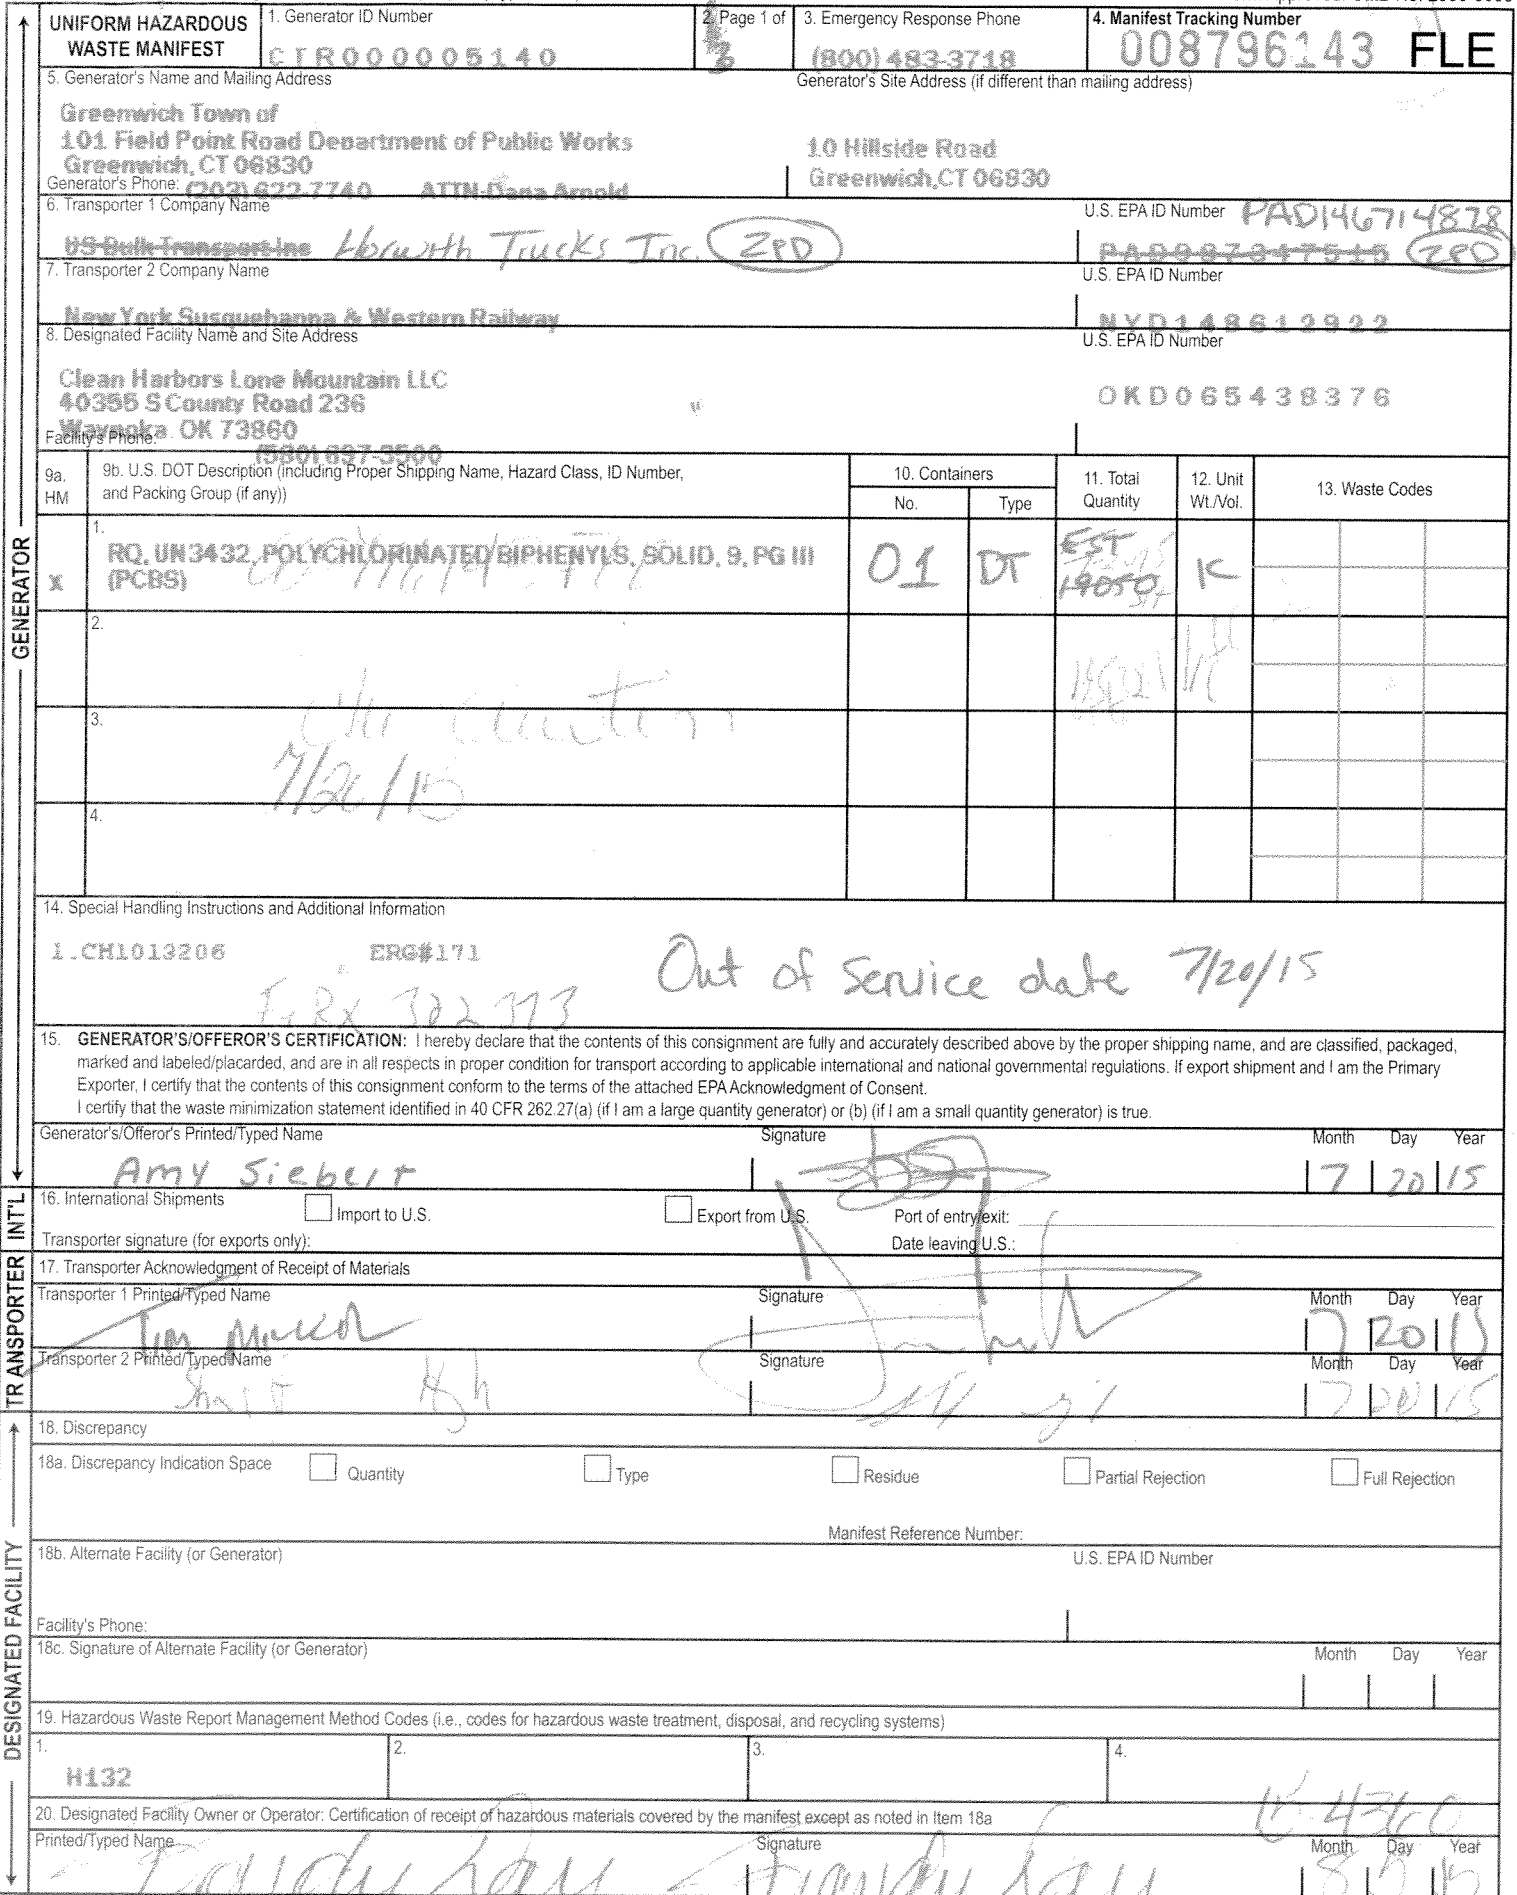 UNIFORM HAZARDOUS
WASTE MANIFEST
1. Generator ID Number
CTR000005140
2. Page 1 of
3. Emergency Response Phone
(800) 483-3718
4. Manifest Tracking Number
008796143 FLE
5. Generator's Name and Mailing Address
Generator's Site Address (if different than mailing address)
Greenwich Town of
101 Field Point Road Department of Public Works
Greenwich, CT 06830
10 Hillside Road
Greenwich, CT 06830
Generator's Phone: (203) 622-7740 ATTN:Dana Arnold
6. Transporter 1 Company Name
U.S. EPA ID Number PAD146714878
US Bulk Transport Inc Horwith Trucks Inc. ZPD
PAD987347515 ZPD
7. Transporter 2 Company Name
U.S. EPA ID Number
New York Susquehanna & Western Railway
NYD148612922
8. Designated Facility Name and Site Address
U.S. EPA ID Number
Clean Harbors Lone Mountain LLC
40355 S County Road 236
Waynoka OK 73860
OKD065438376
Facility's Phone: (580) 697-3500
9a. HM
9b. U.S. DOT Description (including Proper Shipping Name, Hazard Class, ID Number, and Packing Group (if any))
10. Containers
No. Type
11. Total Quantity
12. Unit Wt./Vol.
13. Waste Codes
1.
X RQ, UN3432, POLYCHLORINATED BIPHENYLS, SOLID, 9, PG III
(PCBS)
01 DT EST 19050 K
2.
3.
7/20/15
4.
14. Special Handling Instructions and Additional Information
1.CH1013206 ERG#171 Out of Service date 7/20/15
15. GENERATOR'S/OFFEROR'S CERTIFICATION: I hereby declare that the contents of this consignment are fully and accurately described above by the proper shipping name, and are classified, packaged,
marked and labeled/placarded, and are in all respects in proper condition for transport according to applicable international and national governmental regulations. If export shipment and I am the Primary
Exporter, I certify that the contents of this consignment conform to the terms of the attached EPA Acknowledgment of Consent.
I certify that the waste minimization statement identified in 40 CFR 262.27(a) (if I am a large quantity generator) or (b) (if I am a small quantity generator) is true.
Generator's/Offeror's Printed/Typed Name Signature Month Day Year
Amy Siebert 7 20 15
16. International Shipments Import to U.S. Export from U.S. Port of entry/exit:
Transporter signature (for exports only): Date leaving U.S.:
17. Transporter Acknowledgment of Receipt of Materials
Transporter 1 Printed/Typed Name Signature Month Day Year
Tim 7 20 15
Transporter 2 Printed/Typed Name Signature Month Day Year
7 20 15
18. Discrepancy
18a. Discrepancy Indication Space Quantity Type Residue Partial Rejection Full Rejection
Manifest Reference Number:
18b. Alternate Facility (or Generator) U.S. EPA ID Number
Facility's Phone:
18c. Signature of Alternate Facility (or Generator) Month Day Year
19. Hazardous Waste Report Management Method Codes (i.e., codes for hazardous waste treatment, disposal, and recycling systems)
1. 2. 3. 4.
H132
20. Designated Facility Owner or Operator: Certification of receipt of hazardous materials covered by the manifest except as noted in Item 18a
Printed/Typed Name Signature Month Day Year
GENERATOR
INT'L
TRANSPORTER
DESIGNATED FACILITY